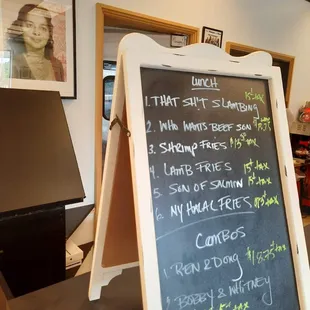 LUNCH
1. THAT SH*T SLAMBING 15+tax
2. WHO WANTS BEEF SON
3. SHRIMP FRIES $15+tax
4. LAMB FRIES 15+tax
5. SON OF SALMON 15+tax
6. NY HALAL FRIES $15+tax
COMBOS
1. REN & DONG
BOBBY & WHITNEY